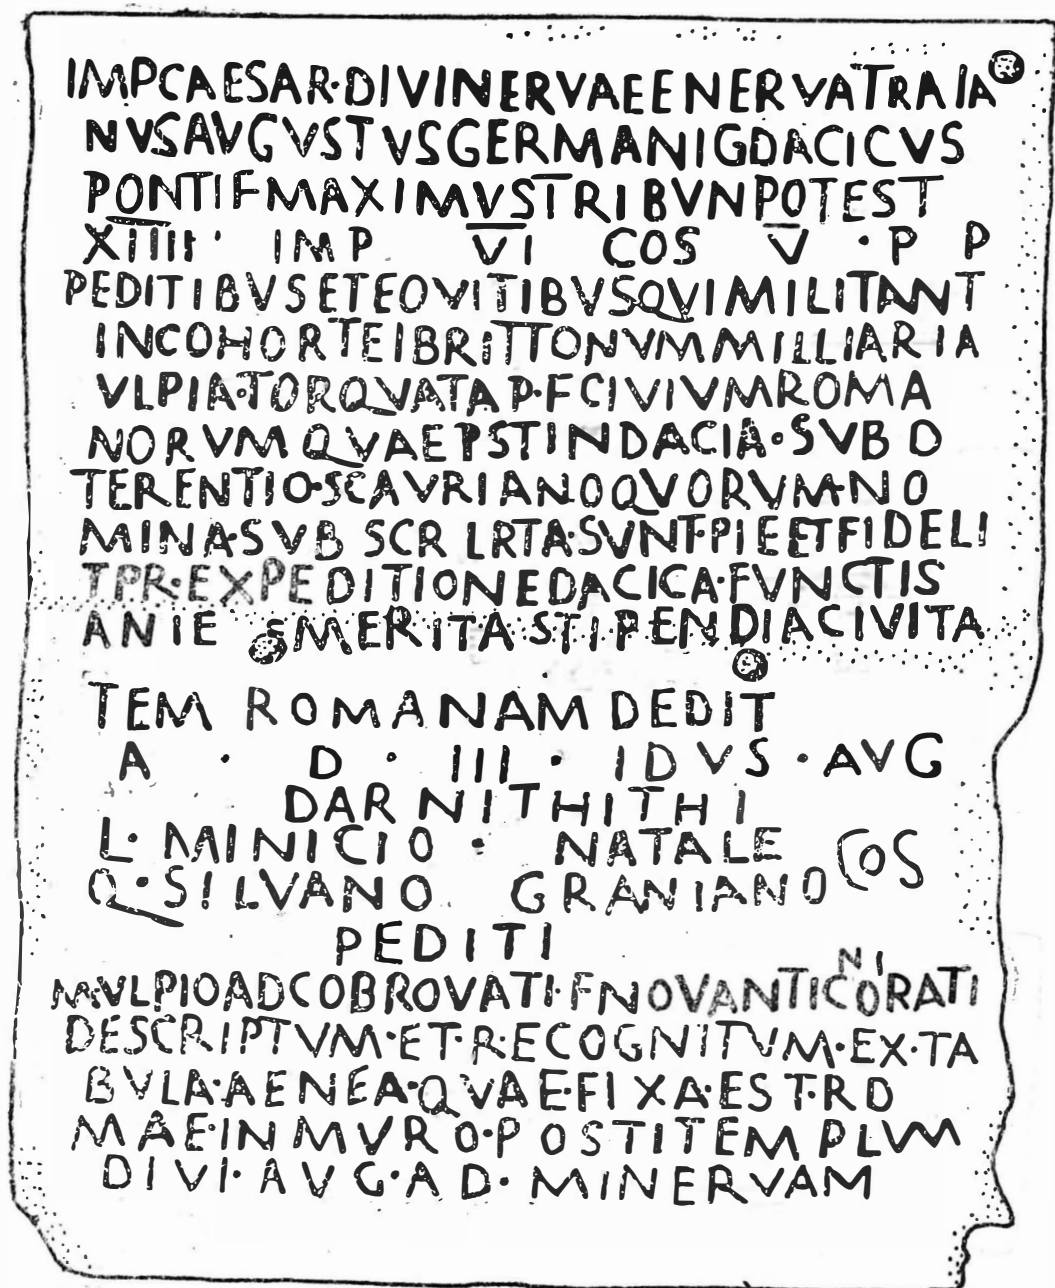 IMPCAESAR·DIVINERVAEENERVATRAIA
NVSAVGVSTVSGERMANIGDACICVS
PONTIFMAXIMVSTRIBVNPOTEST
XIIII' IMP VI COS V · P P
PEDITIBVSETEOVITIBVSQVIMILITANT
INCOHORTEIBRITTONVMMILLIARIA
VLPIA·TORQVATAP·FCIVIVMROMA
NORVMQVAEPSTINDACIA·SVBD
TERENTIO·SCAVRIANOQVORVM·NO
MINA·SVB SCR LRTA·SVNT·PIEETFIDELI
TPR·EXPEDITIONEDACICA·FVNCTIS
ANIE SMERITA·STIPENDIACIVITA
TEM ROMANAM DEDIT
A · D · III · IDVS · AVG
DARNITHITHI
L· MINICIO · NATALE
Q·SILVANO GRANIANO COS
PEDITI
M·VLPIOADCOBROVATI·FNOVANTICORATI
NI
DESCRIPTVM·ET·RECOGNITVM·EX·TA
BVLA·AENEA·QVAE·FIXA·EST·RO
MAE·INMVRO·POSTITEMPLVM
DIVI·AVG·AD·MINERVAM